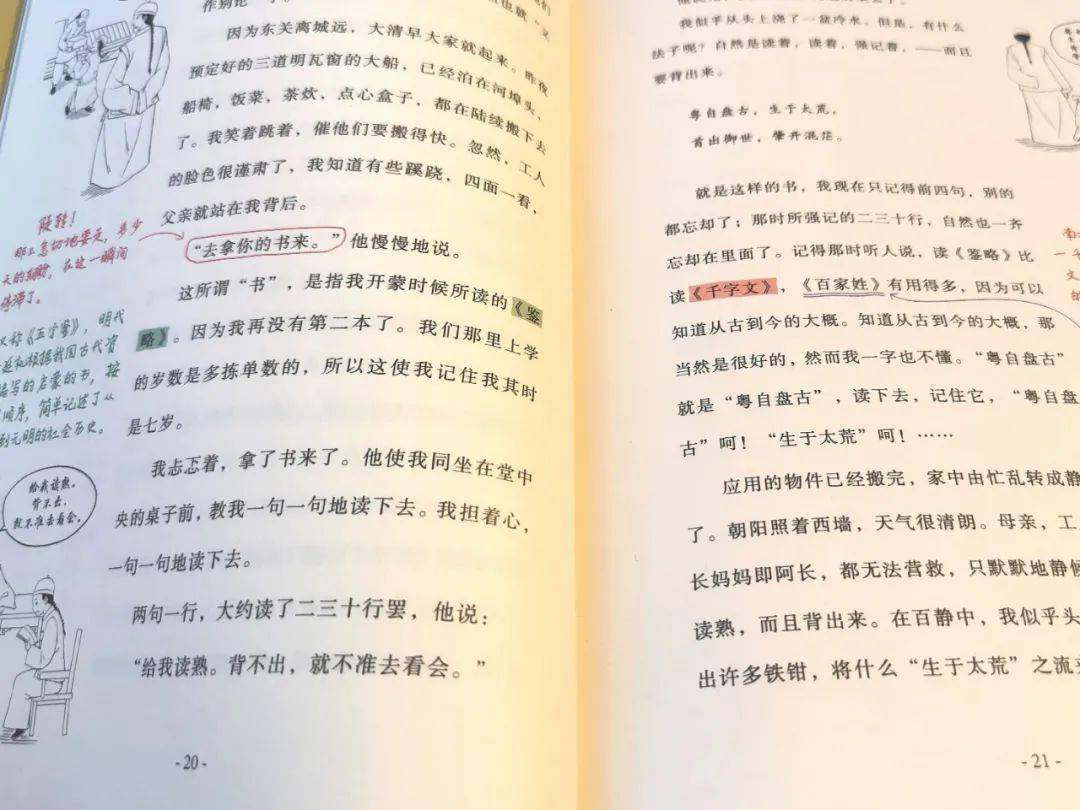 作别论”了。
因为东关离城远，大清早大家就起来。昨夜
预定好的三道明瓦窗的大船，已经泊在河埠头，
船椅，饭菜，茶炊，点心盒子，都在陆续搬下去
了。我笑着跳着，催他们要搬得快。忽然，工人
的脸色很谨肃了，我知道有些蹊跷，四面一看，
父亲就站在我背后。
“去拿你的书来。”他慢慢地说。
这所谓“书”，是指我开蒙时候所读的《鉴
略》。因为我再没有第二本了。我们那里上学
的岁数是多拣单数的，所以这使我记住我其时
是七岁。
我忐忑着，拿了书来了。他使我同坐在堂中
央的桌子前，教我一句一句地读下去。我担着心，
一句一句地读下去。
两句一行，大约读了二三十行罢，他说：
“给我读熟。背不出，就不准去看会。”
陡转！
那么急切地要走，多少
天的期盼，在这一瞬间
停滞了。
又称《五字鉴》，明代
延和根据我国古代资
编写的启蒙的书，按
顺序，简单记述了从
到元明的社会历史。
给我读熟。
背不出，
就不准去看会。
-20-
我似乎从头上浇了一盆冷水。但是，有什么
法子呢？自然是读着，读着，强记着，——而且
要背出来。
粤自盘古，生于太荒，
首出御世，肇开混茫。
就是这样的书，我现在只记得前四句，别的
都忘却了；那时所强记的二三十行，自然也一齐
忘却在里面了。记得那时听人说，读《鉴略》比
读《千字文》，《百家姓》有用得多，因为可以
知道从古到今的大概。知道从古到今的大概，那
当然是很好的，然而我一字也不懂。“粤自盘古”
就是“粤自盘古”，读下去，记住它，“粤自盘
古”呵！“生于太荒”呵！……
应用的物件已经搬完，家中由忙乱转成静
了。朝阳照着西墙，天气很清朗。母亲，工
长妈妈即阿长，都无法营救，只默默地静候
读熟，而且背出来。在百静中，我似乎头
出许多铁钳，将什么“生于太荒”之流
一千
文
的
-21-